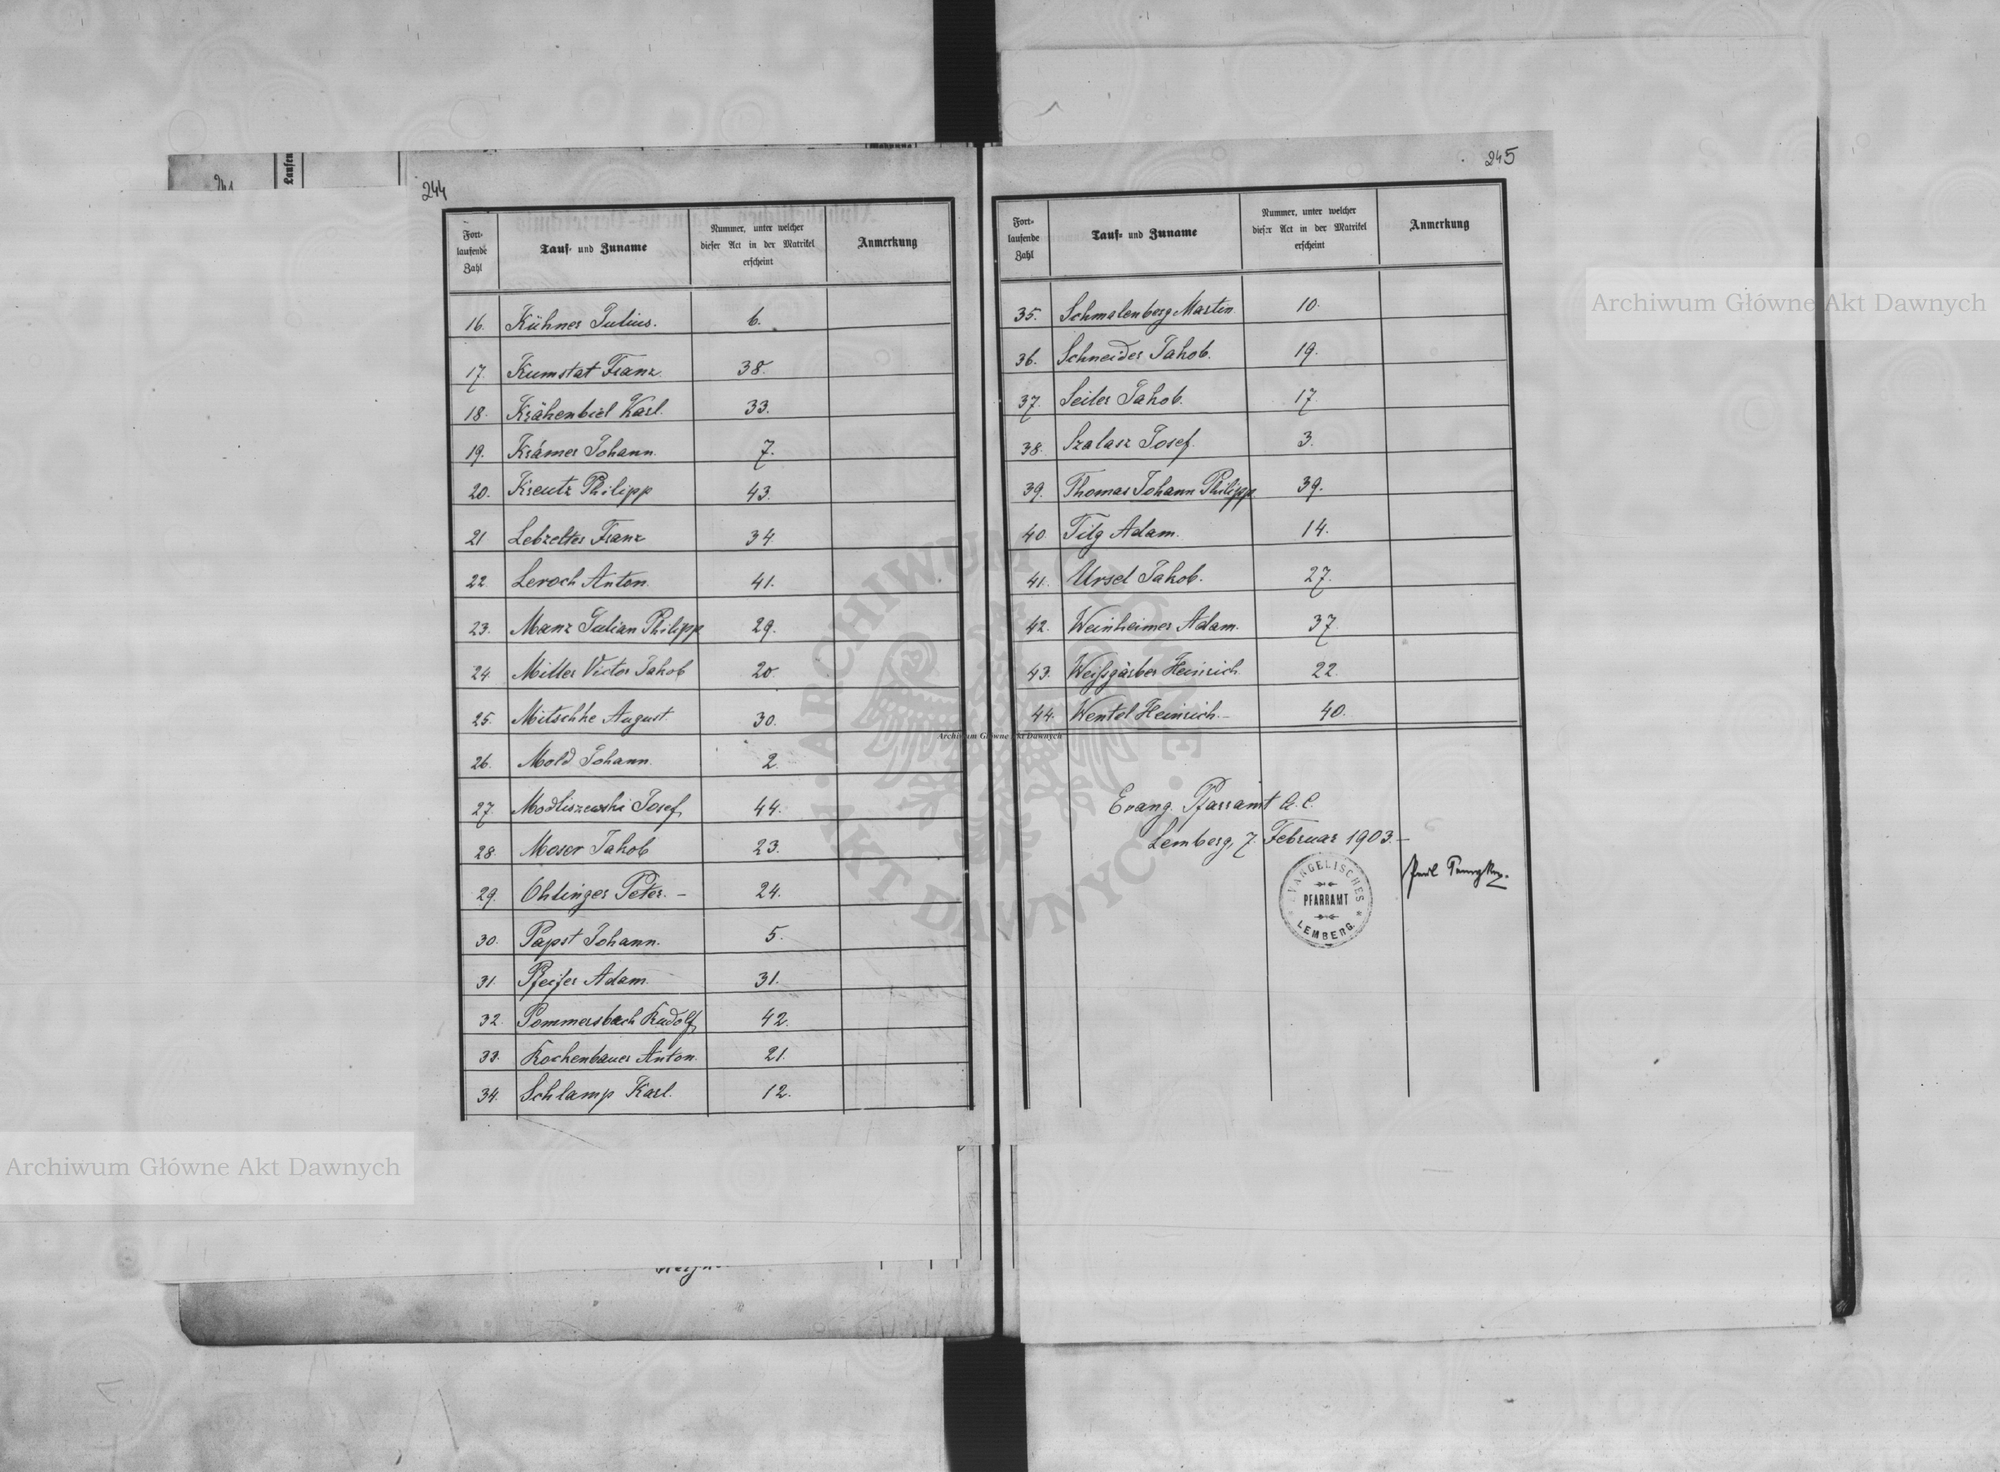 244
Fort-
laufende
Zahl
Tauf- und Zuname
Nummer, unter welcher
dieser Act in der Matrikel
erscheint
Anmerkung
16. Kühner Julius. 6.
17. Kumstat Franz. 38.
18. Krähenbiel Karl. 33.
19. Krämer Johann. 7.
20. Kreutz Philipp 43.
21 Lebzelter Franz 34.
22. Leroch Anton. 41.
23. Manz Julian Philipp 29.
24. Miller Victor Jakob 20.
25. Mitschke August 30.
26. Mold Johann. 2.
27. Modliszewski Josef 44.
28. Moser Jakob 23.
29. Ohlinger Peter. – 24.
30. Papst Johann. 5.
31. Pfeifer Adam. 31.
32. Pommersbach Rudolf 42.
33. Rochenbauer Anton. 21.
34. Schlamp Karl. 12.
245
Fort-
laufende
Zahl
Tauf- und Zuname
Nummer, unter welcher
dieser Act in der Matrikel
erscheint
Anmerkung
35. Schmalenberg Martin. 10.
36. Schneider Jakob. 19.
37. Seiler Jakob. 17.
38. Szalasz Josef. 3.
39. Thomas Johann Philipp 39.
40. Tilg Adam. 14.
41. Ursel Jakob. 27.
42. Weinheimer Adam. 37.
43. Weißgärber Heinrich. 22.
44. Wentel Heinrich. – 40.
Evang. Pfarramt A. C.
Lemberg, 7. Februar 1903. –
EVANGELISCHES
PFARRAMT
LEMBERG
Archiwum Główne Akt Dawnych
Archiwum Główne Akt Dawnych
Archiwum Główne Akt Dawnych
ARCHIWUM GŁÓWNE AKT DAWNYCH